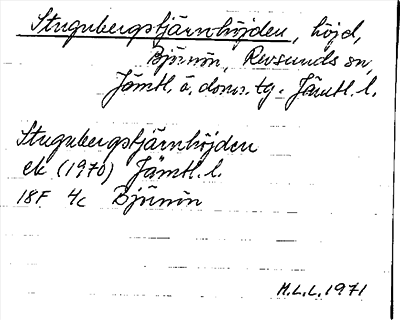 Stugubergstjärnhöjden, höjd,
Bjärme, Revsunds sn,
Jämtl. ö. doms. tg. Jämtl. l.
Stugubergstjärnhöjden
ek (1970) Jämtl. l.
18F 4c
M.L.L. 1971